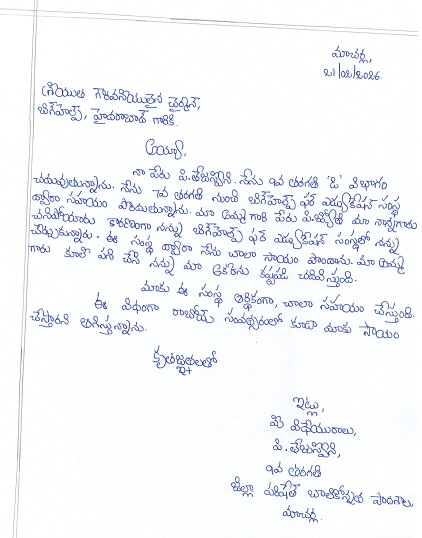 మాచర్ల,
21/02/2026.
శ్రీయుత గౌరవనీయులైన చైర్మన్,
బిగ్‌హెల్ప్, హైదరాబాద్ గారికి.
అయ్యా,
నా పేరు పి.తేజస్విని. నేను 9వ తరగతి 'డి' విభాగం
చదువుతున్నాను. నేను 7వ తరగతి నుండి బిగ్‌హెల్ప్ ఫర్ ఎడ్యుకేషన్ సంస్థ
ద్వారా సహాయం పొందుతున్నాను. మా అమ్మ గారి పేరు పి.జ్యోతి మా నాన్నగారు
చనిపోయారు కారణంగా నన్ను బిగ్‌హెల్ప్ ఫర్ ఎడ్యుకేషన్ సంస్థలో నన్ను
చేర్చుకున్నారు. ఈ సంస్థ ద్వారా నేను చాలా సాయం పొందాను. మా అమ్మ
గారు కూలి పని చేసి నన్ను మా అక్కను కష్టపడి చదివిస్తుంది.
మాకు ఈ సంస్థ ఆర్థికంగా, చాలా సహాయం చేస్తుంది.
ఈ విధంగా రాబోయే సంవత్సరంలో కూడా మాకు సాయం
చేస్తారని ఆశిస్తున్నాను.
కృతజ్ఞతలతో
ఇట్లు,
మీ విధేయురాలు,
పి. తేజస్విని,
9వ తరగతి
జిల్లా పరిషత్ బాలికోన్నత పాఠశాల,
మాచర్ల.